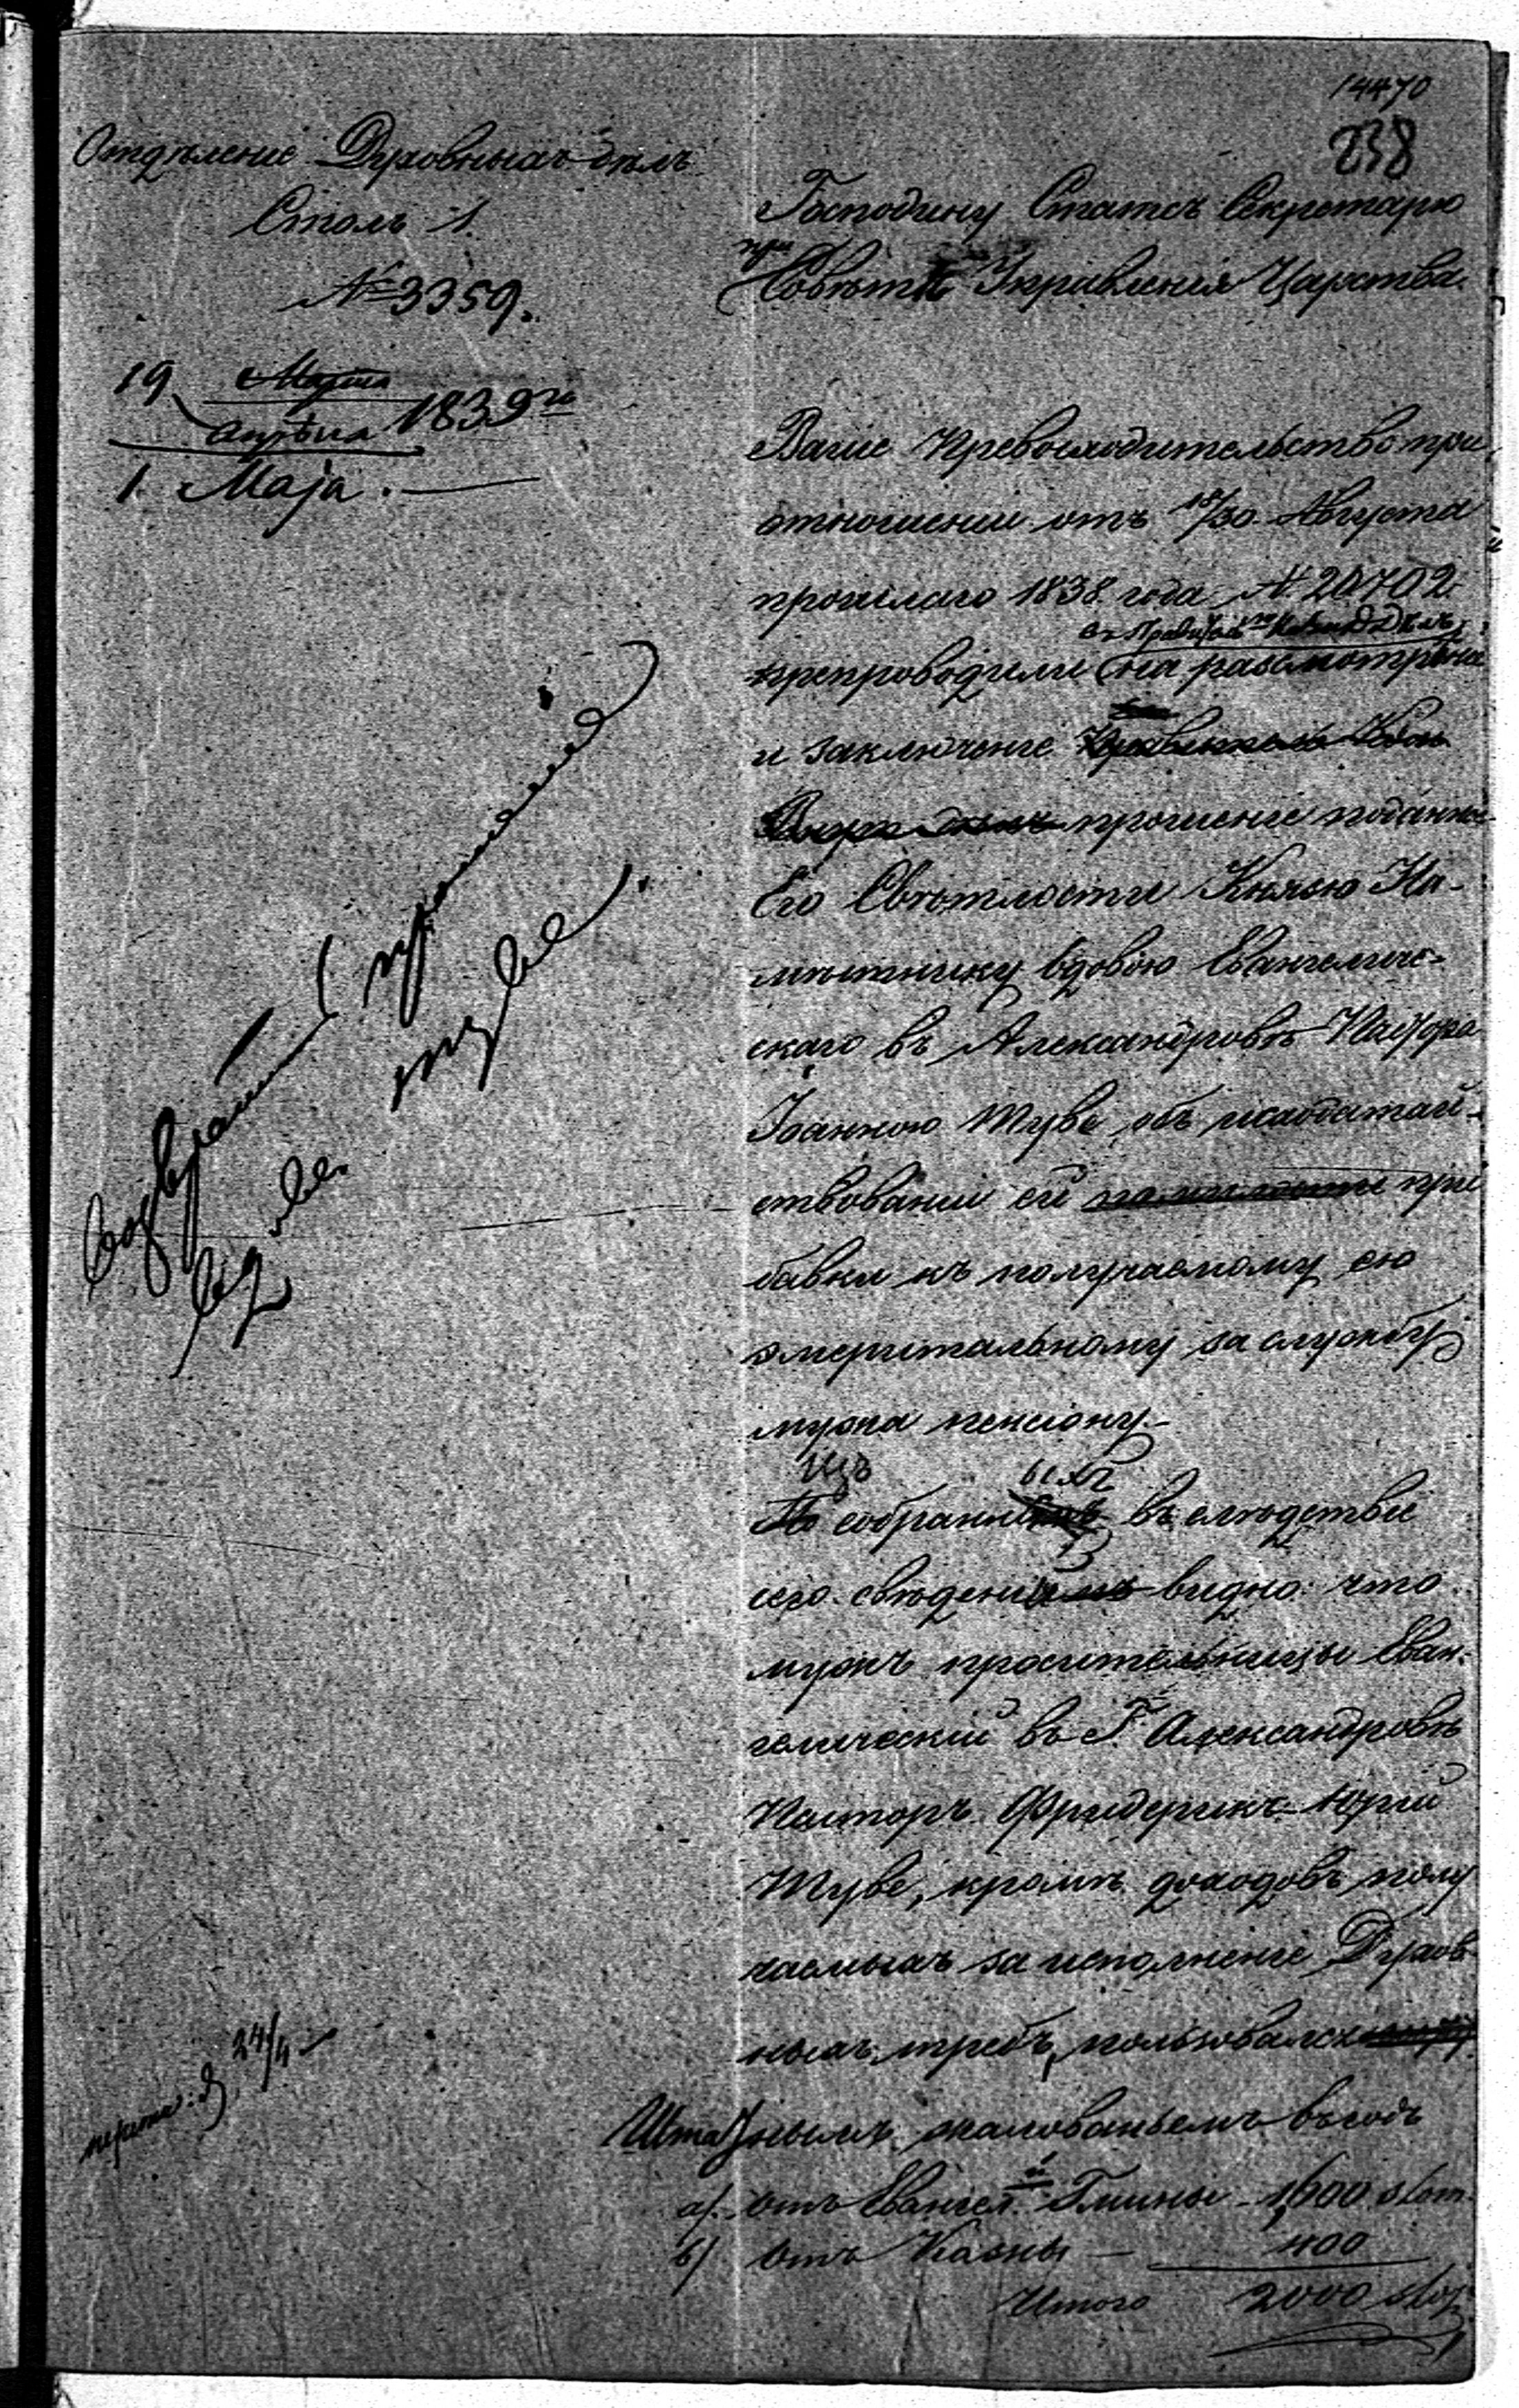 14470
238
Отдѣленіе Духовныхъ дѣлъ
Столъ 1.
№ 3359.
19 Марта
Апрѣля 1839 го
1. Маја.
Господину Статсъ Секретарю
при Совѣтѣ Управленія Царства.
Ваше Превосходительство при
отношеніи отъ 18/30 Августа
прошлаго 1838 года № 20702
препроводили на разсмотрѣніе
и заключеніе
прошеніе поданное
Его Свѣтлости Князю На-
мѣстнику вдовою Евангеличе-
скаго въ Александровѣ Пастора
Іоанною Туве, объ исходатай-
ствованіи ей при
бавки къ получаемому ею
эмеритальному за службу
мужа пенсіону.
Изъ собранныхъ въ слѣдствіе
сего свѣденій видно: что
мужъ просительницы Еван-
гелическій въ Г. Александровѣ
Пасторъ Фридерикъ Юрій
Туве, кромѣ доходовъ полу
чаемыхъ за исполненіе Духов
ныхъ требъ, пользовался
Штатнымъ жалованьемъ въ годъ
а/. отъ Евангел. Гмины - 1,600 злот.
б/ отъ Казны — 400
Итого 2000 злот.
24/4